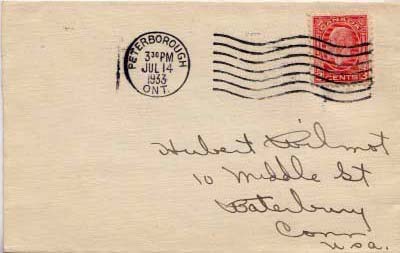 PETERBOROUGH
3 30 PM
JUL 14
1933
ONT.
CANADA
3 CENTS 3
Hubert Wilmot
10 Middle St
Waterbury
Conn
USA.